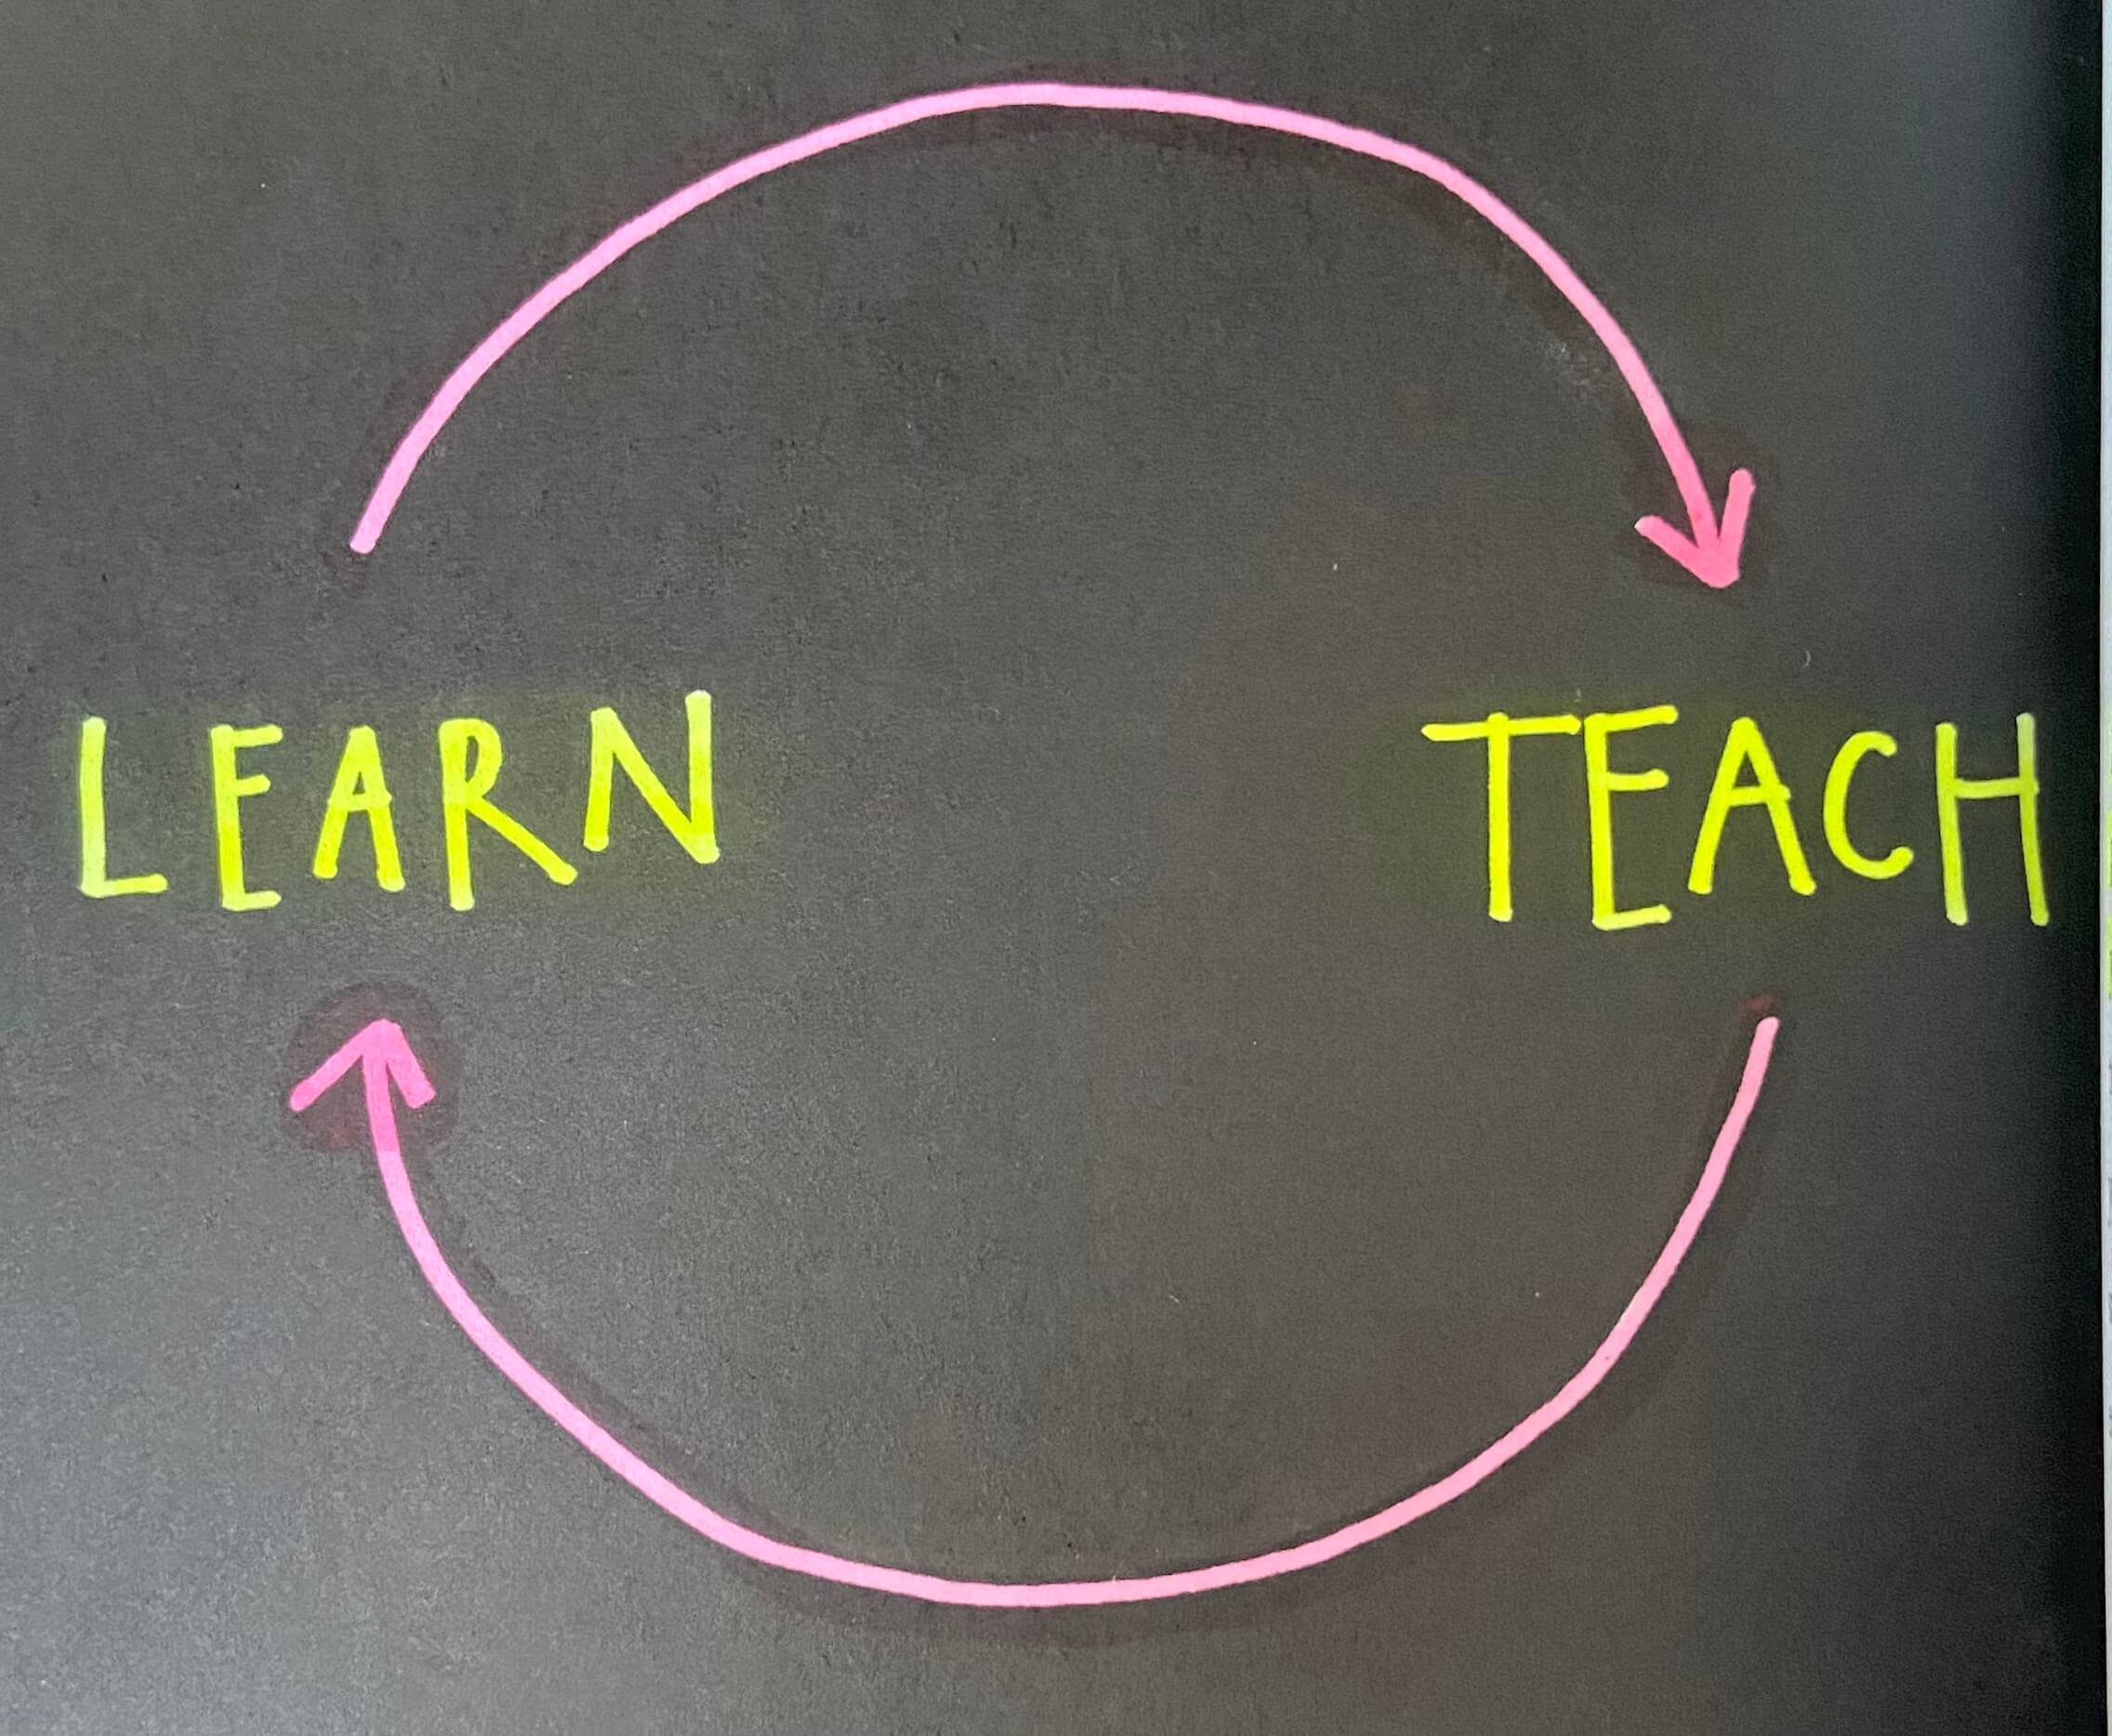 LEARN
TEACH